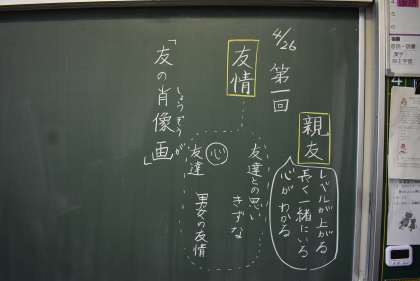 4/26
第一回
親友
レベルが上がる
長く一緒にいる
心がわかる
友情
友達との思い
きずな
心
男女の友情
友達
「友の肖像画」
しょうぞうが